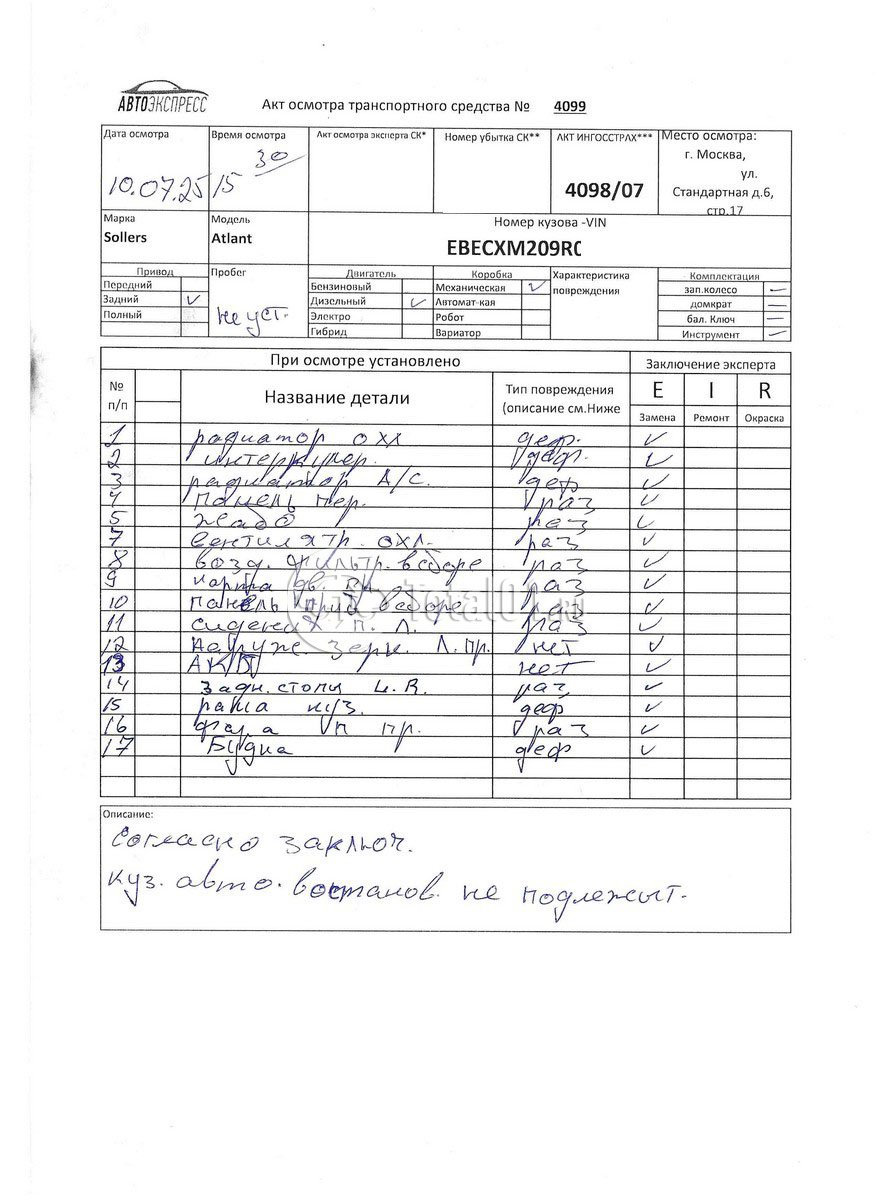 АВТОЭКСПРЕСС
Акт осмотра транспортного средства № 4099
Дата осмотра Время осмотра Акт осмотра эксперта СК* Номер убытка СК** АКТ ИНГОССТРАХ*** Место осмотра:
10.07.25 15 30 4098/07 г. Москва,
ул.
Стандартная д.6,
стр.17
Марка Модель Номер кузова -VIN
Sollers Atlant EBECXM209R
Привод Пробег Двигатель Коробка Характеристика повреждения Комплектация
Передний Бензиновый Механическая ✓ зап.колесо —
Задний ✓ не уст. Дизельный ✓ Автомат-кая домкрат —
Полный Электро Робот бал. Ключ —
Гибрид Вариатор Инструмент —
При осмотре установлено Заключение эксперта
№ п/п Название детали Тип повреждения (описание см.Ниже E I R
Замена Ремонт Окраска
1 радиатор охл деф. ✓
2 интеркулер. деф. ✓
3 радиатор А/С. деф ✓
4 панель пер. раз ✓
5 раз ✓
7 вентилятр. охл. раз ✓
8 возд. фильтр. в сборе раз ✓
9 раз ✓
10 панель приб в сборе раз ✓
11 п. л. раз ✓
12 Наруж. зерк. л. пр. нет ✓
13 АКБ нет ✓
14 задн. стопы L. R. раз ✓
15 рама куз. деф ✓
16 фара п пр. раз ✓
17 Будка деф ✓
Total01.ru
Описание:
Согласно заключ.
куз. авто. востанов. не подлежыт.